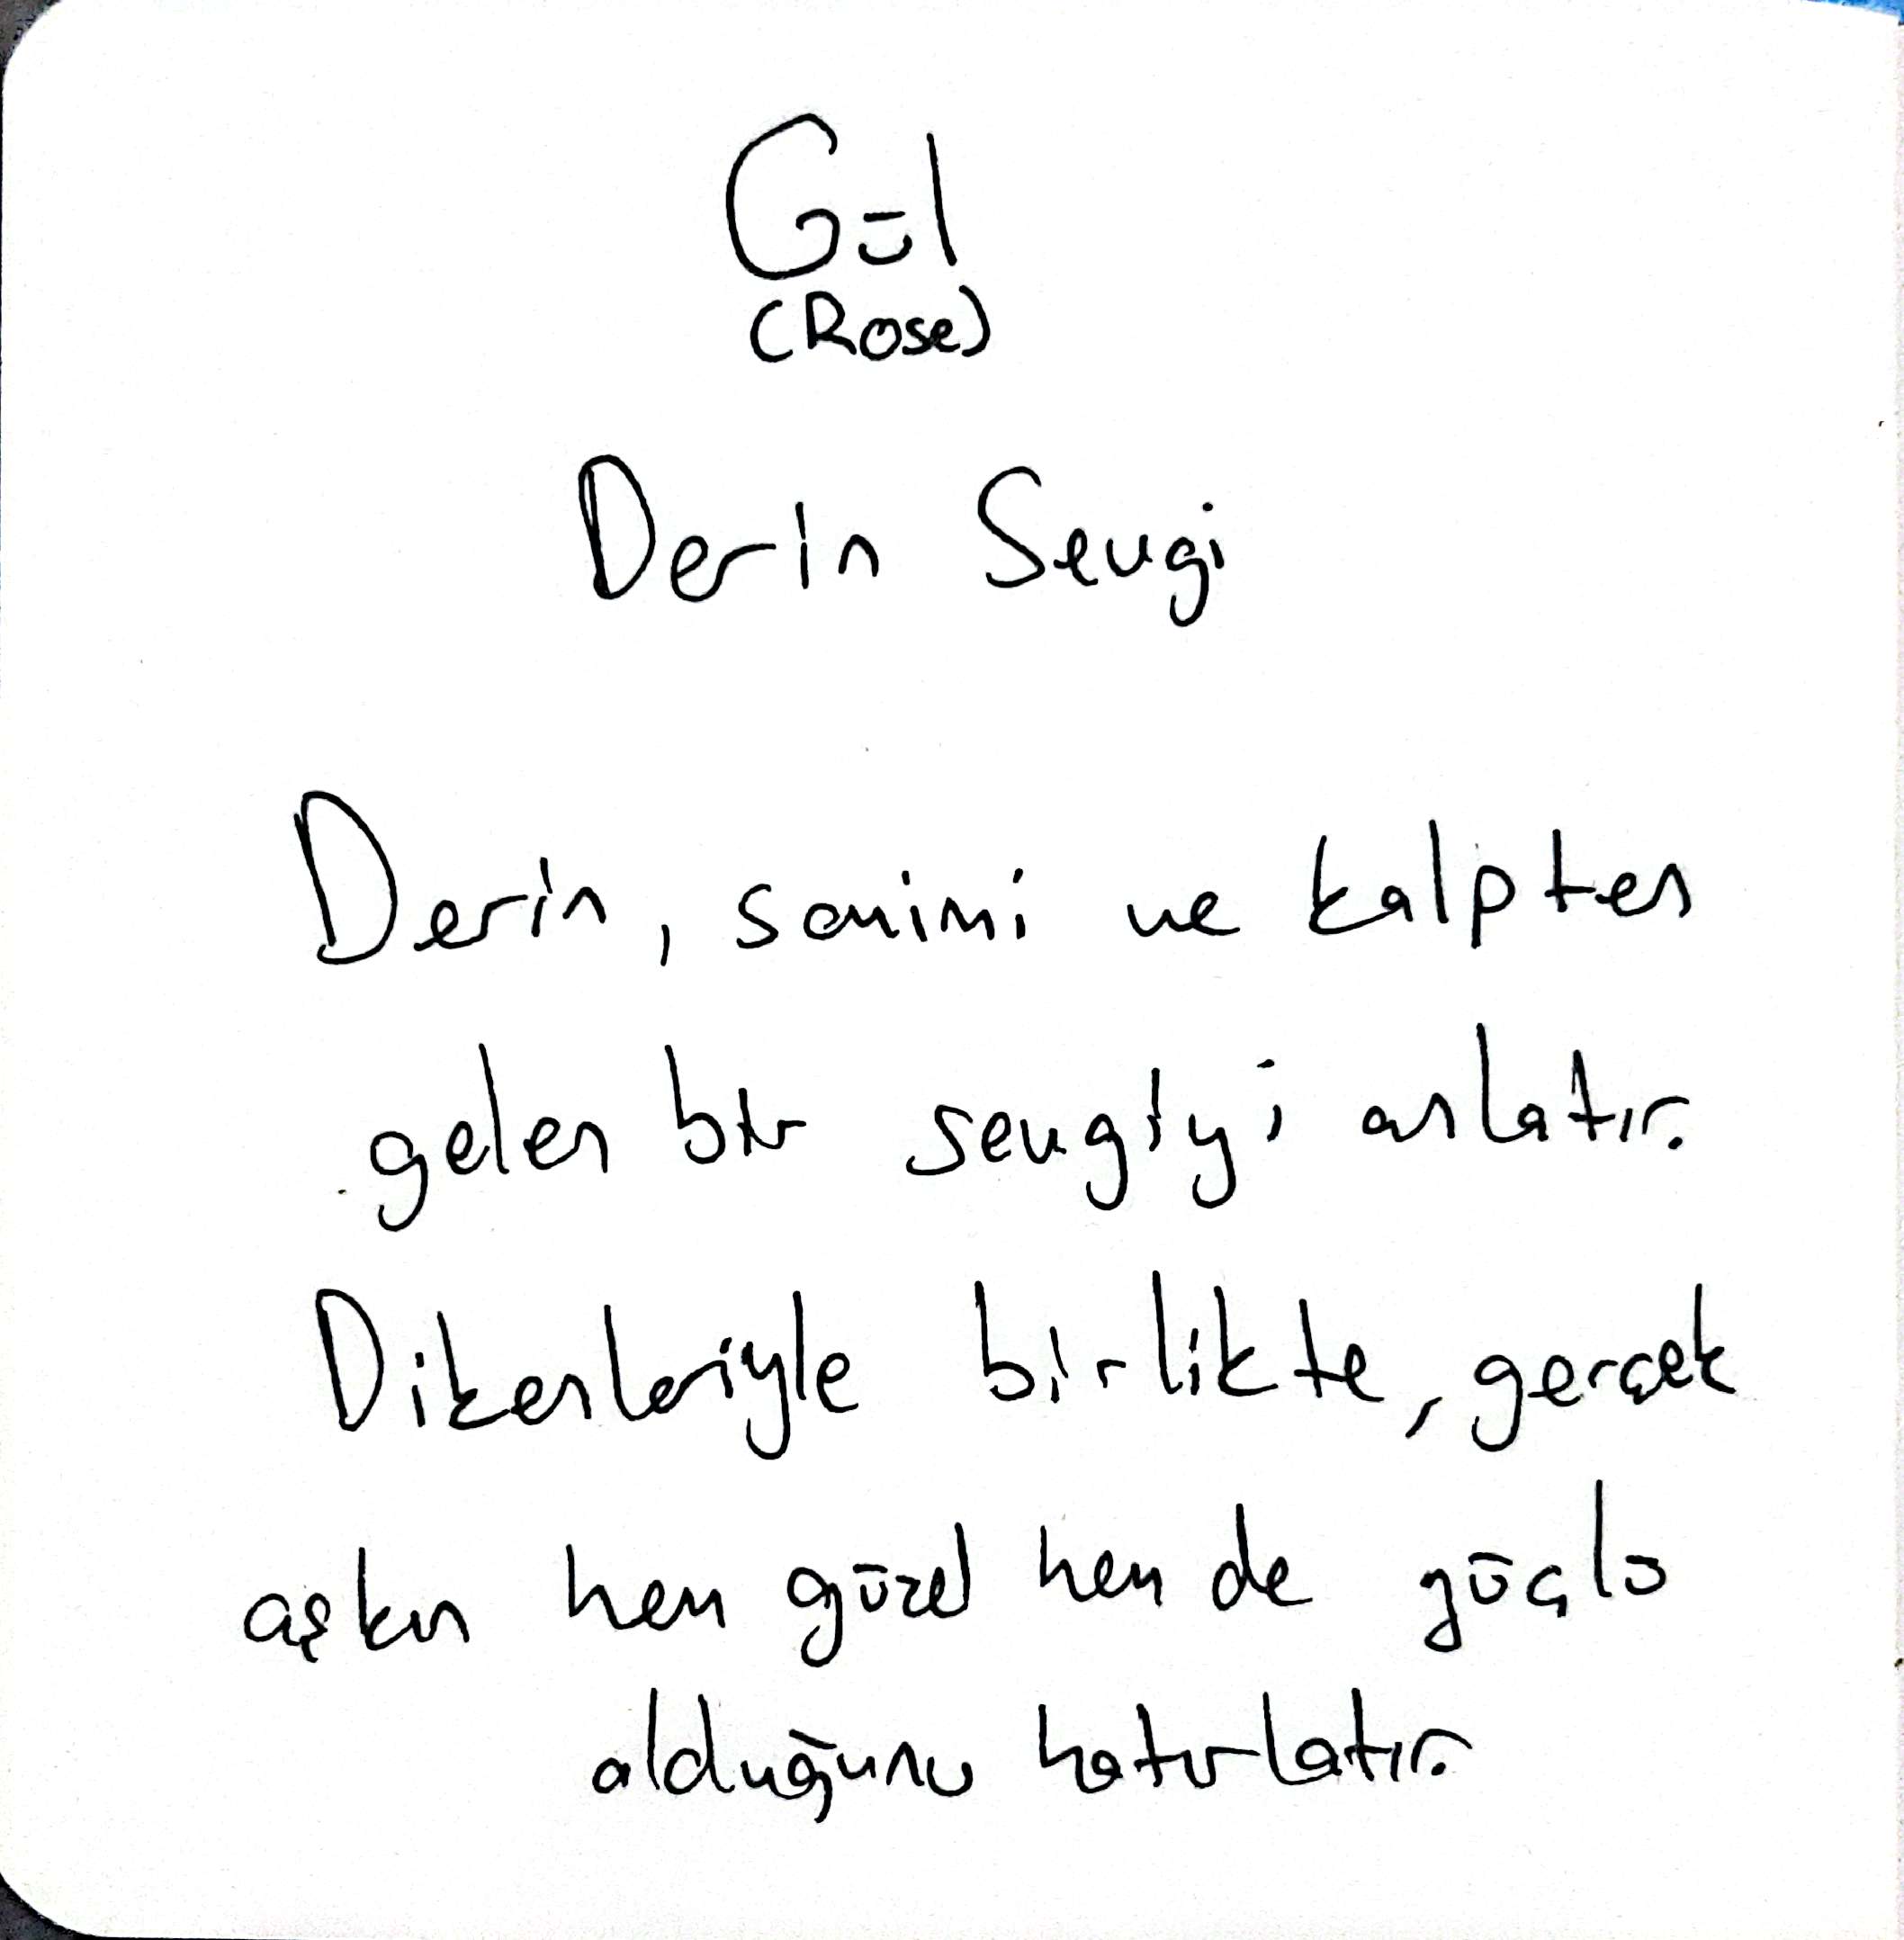 Gül
(Rose)
Derin Sevgi
Derin, samimi ve kalpten
gelen bir sevgiyi anlatır.
Dikenleriyle birlikte, gerçek
aşkın hem güzel hem de güçlü
olduğunu hatırlatır.